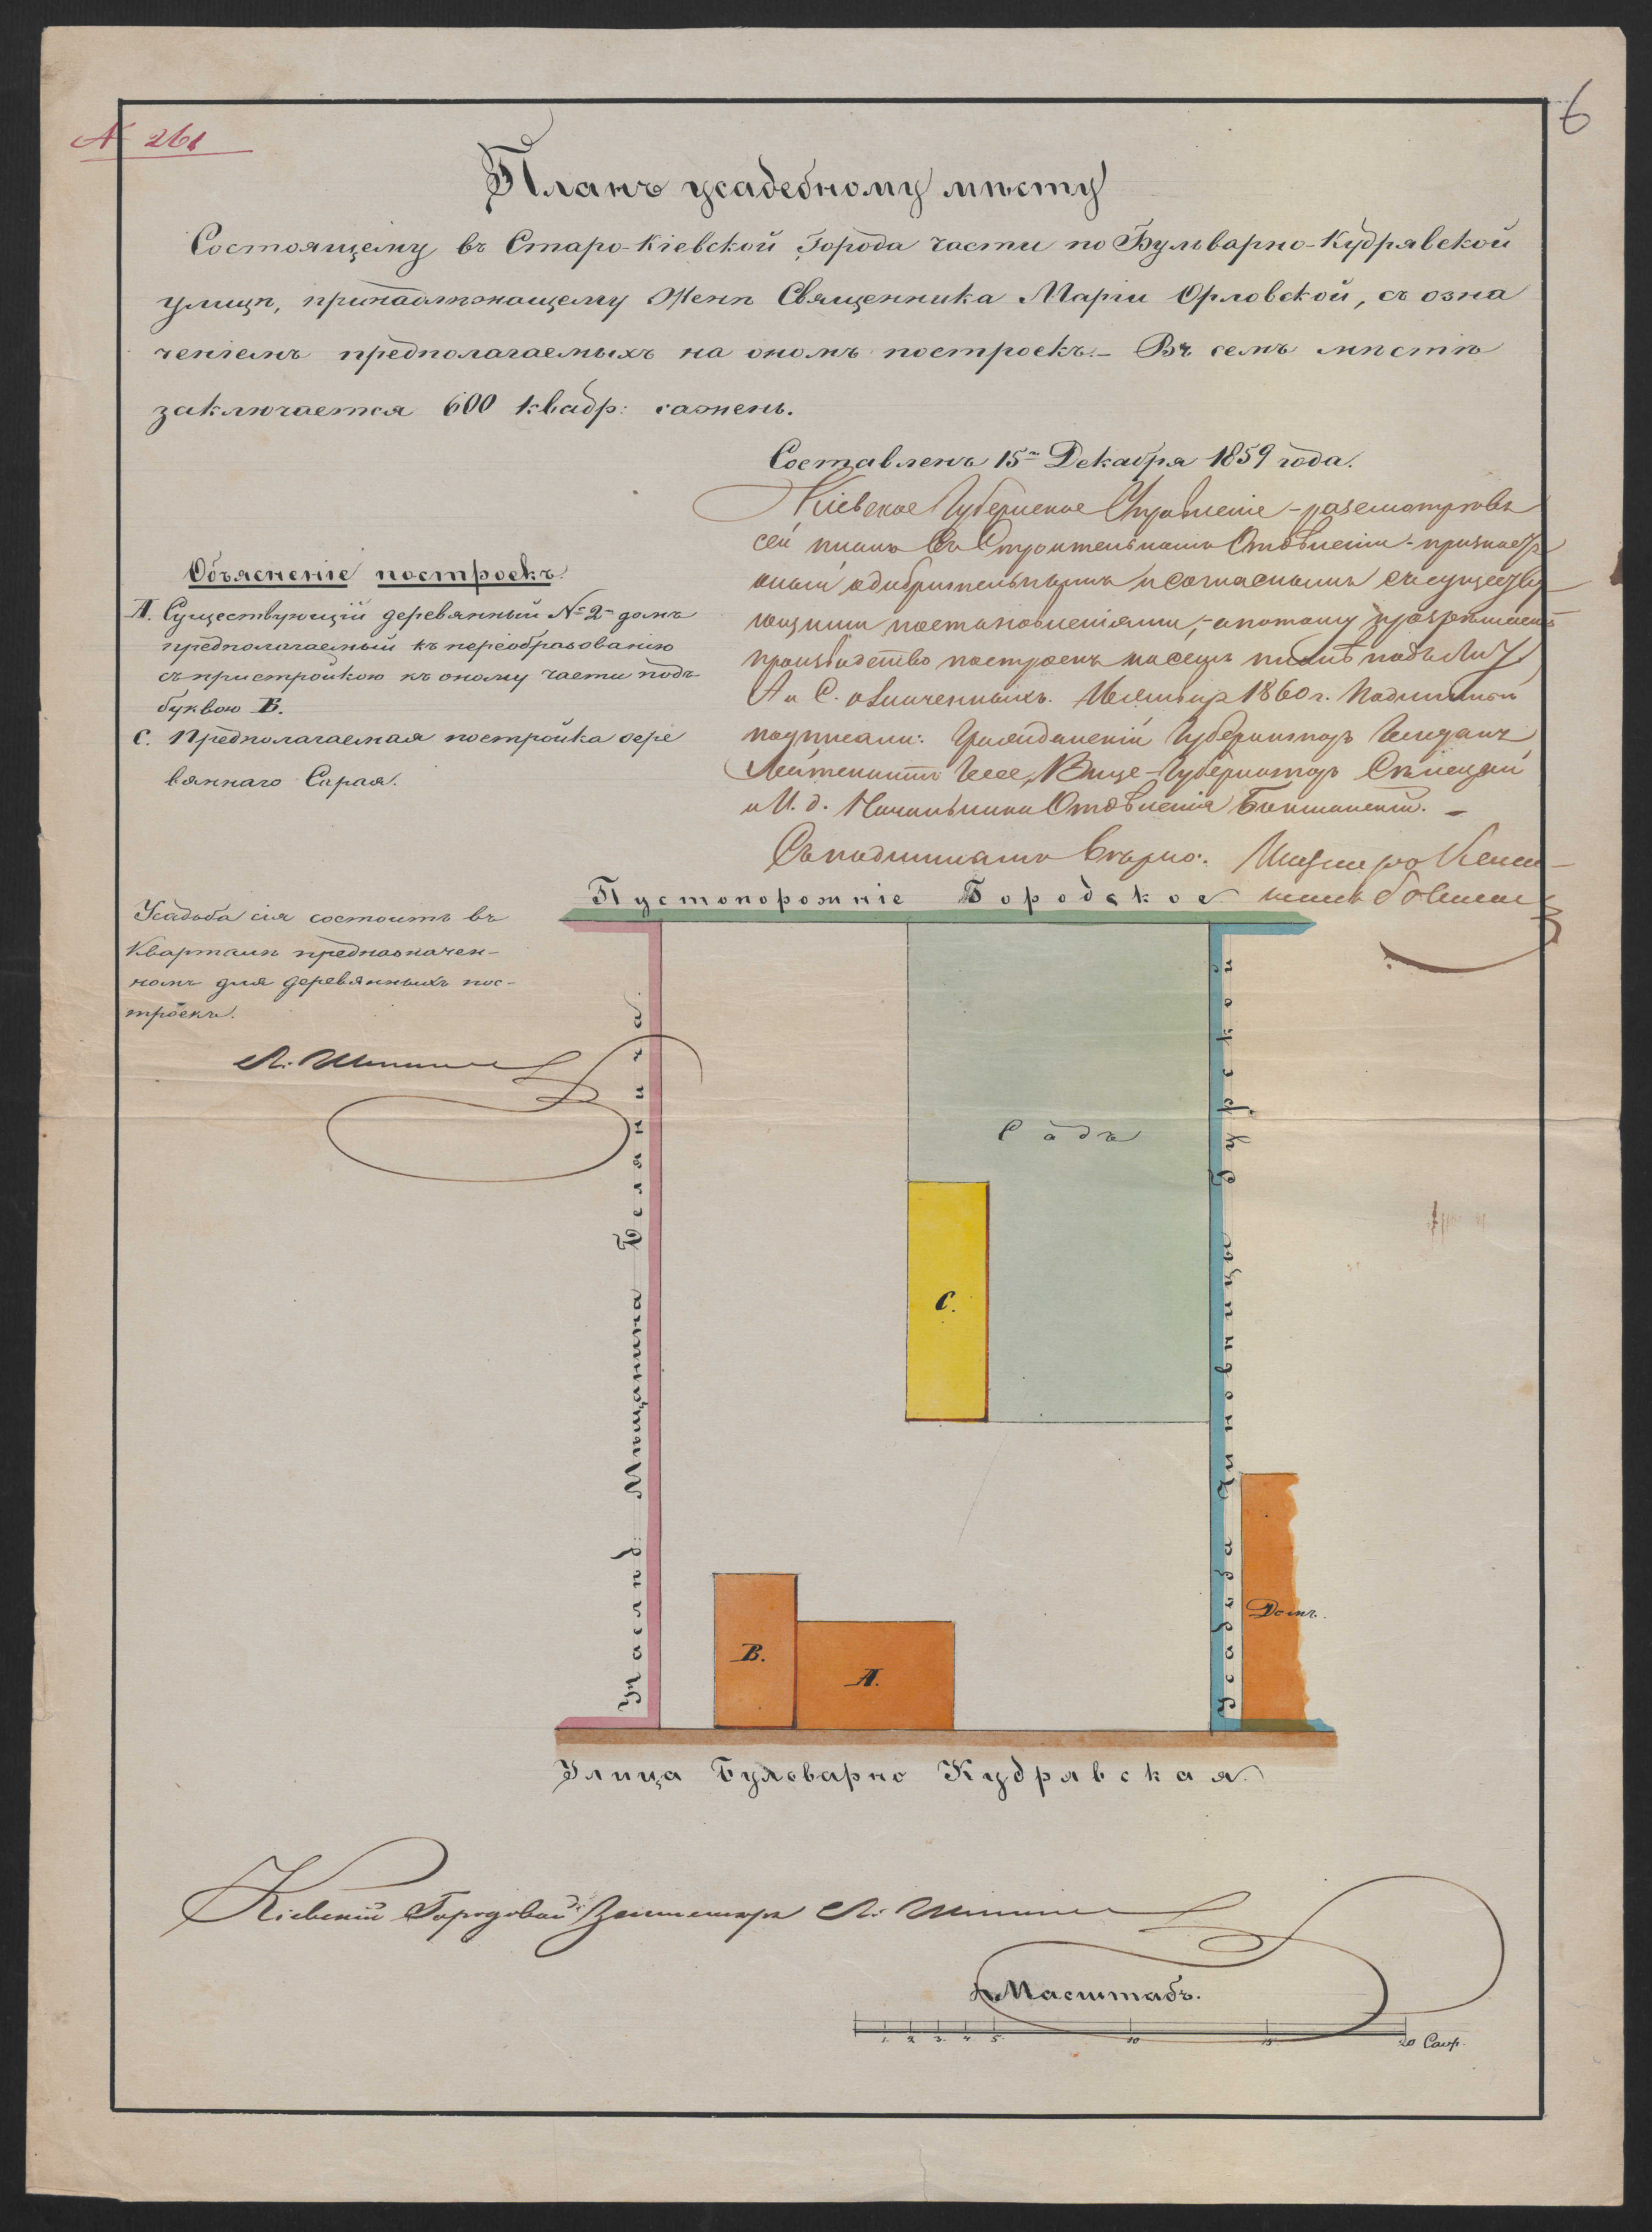 N 261
6
Планъ усадебному мѣсту
Состоящему въ Старо-Кіевской Города части по Бульварно-Кудрявской
улицѣ, принадлѣжащему Женѣ Священника Маріи Орловской, съ озна
ченіемъ предполагаемыхъ на ономъ построекъ.- Въ семъ мѣстѣ
заключается 600 квадр: сажень.
Составленъ 15го Декабря 1859 года.
Кіевское Губернское Правленіе - разсмотрѣвъ
сей планъ въ Строительномъ Отдѣленіи - признаетъ
оный одобрительнымъ и согласнымъ съ существу
ющими постановленіями, - а потому и разрѣшаетъ
производство построекъ на семъ планѣ подъ Лит.
А и С. означенныхъ. 1860 г. Подлинный
подписали: Гражданскій Губернаторъ
Лейтенантъ Гессе, Вице-Губернаторъ
и И. д. Начальника Отдѣленія
Съ подлиннымъ вѣрно:
Объясненіе построекъ.
А. Существующій деревянный № 2й домъ
предполагаемый къ переобразованію
съ пристройкою къ оному части подъ
буквою В.
С. Предполагаемая постройка дере
вяннаго Сарая.
Усадьба сія состоитъ въ
Кварталѣ предназначен-
номъ для деревянныхъ пос-
троекъ.
Пустопорожніе Городское
Усадьб: Мѣщанина
Садъ
С.
В.
А.
Усадьба Чиновницы
Домъ.
Улица Бульварно Кудрявская
Кіевскій Городовой Землемѣръ
Масштабъ.
1 2 3 4 5 10 15 20 Саж.